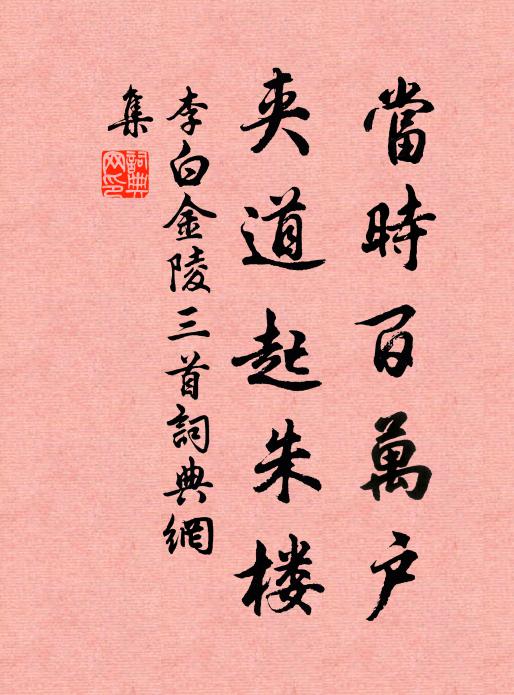 當時百萬户
夾道起朱楼
李白金陵三首詞典網
集
詞典网印